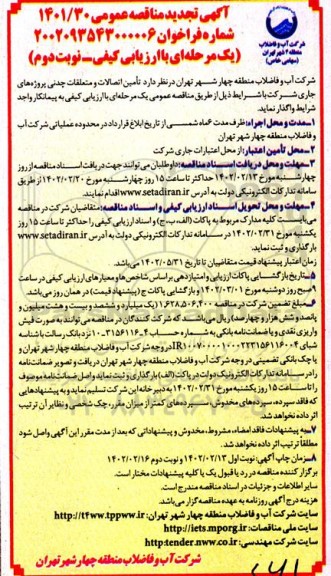 آگهی تجدید مناقصه عمومی ۱۴۰۱/۳۰
شماره فراخوان ۲۰۰۲۰۹۳۵۴۳۰۰۰۰۰۶
(یک مرحله‌ای با ارزیابی کیفی - نوبت دوم)
شرکت آب و فاضلاب
منطقه ۴ شهر تهران
(سهامی خاص)
شرکت آب و فاضلاب منطقه چهار شهر تهران در نظر دارد تأمین اتصالات و متعلقات چدنی پروژه‌های
جاری شرکت با شرایط ذیل از طریق مناقصه عمومی یک مرحله‌ای با ارزیابی کیفی به پیمانکار واجد
شرایط واگذار نماید.
۱- مدت و محل اجراء: ظرف مدت ۶ ماه شمسی از تاریخ ابلاغ قرارداد در محدوده عملیاتی شرکت آب
و فاضلاب منطقه چهار شهر تهران
۲- محل تأمین اعتبار: از محل اعتبارات جاری شرکت
۳- مهلت و محل دریافت اسناد مناقصه: داوطلبان می‌توانند جهت دریافت اسناد مناقصه از روز
چهارشنبه مورخ ۱۴۰۲/۰۲/۱۳ حداکثر تا ساعت ۱۵ روز چهارشنبه مورخ ۱۴۰۲/۰۲/۲۰ از طریق
سامانه تدارکات الکترونیکی دولت به آدرس www.setadiran.ir اقدام نمایند.
۴- مهلت و محل تحویل اسناد ارزیابی کیفی و اسناد مناقصه: متقاضیان شرکت در مناقصه
می‌بایست کلیه مدارک مربوط به پاکات (الف، ب، ج) و اسناد ارزیابی کیفی را حداکثر تا ساعت ۱۵ روز
یکشنبه مورخ ۱۴۰۲/۰۲/۳۱ در سامانه تدارکات الکترونیکی دولت به آدرس www.setadiran.ir
بارگذاری و ثبت نماید.
زمان اعتبار پیشنهاد قیمت متقاضیان تا تاریخ ۱۴۰۲/۰۵/۳۱ می‌باشد.
۵- تاریخ بازگشایی پاکات ارزیابی و امتیازدهی بر اساس شاخص‌ها و معیارهای ارزیابی کیفی در ساعت
۹ صبح روز دوشنبه مورخ ۱۴۰۲/۰۳/۰۱ و بازگشایی پاکات ج (پیشنهاد قیمت) در همان روز می‌باشد.
۶- مبلغ تضمین شرکت در مناقصه ۱٫۶۲۸٫۵۰۶٫۴۰۰ (یک میلیارد و ششصد و بیست و هشت میلیون و
پانصد و شش هزار و چهارصد) ریال می‌باشد که شرکت کنندگان در مناقصه می‌توانند به صورت فیش
واریزی نقدی و یا ضمانت‌نامه بانکی به شماره حساب
را در سامانه تدارکات الکترونیک دولت در پاکت (الف) بارگذاری و ثبت نماید و اصل ضمانت‌نامه موصوف
را تا ساعت ۱۵ روز یکشنبه مورخ ۱۴۰۲/۰۲/۳۱ به دبیرخانه این شرکت تسلیم نماید و به پیشنهادهایی
که فاقد سپرده، سپرده‌های مخدوش، سپرده‌های کمتر از میزان مقرر، چک شخصی و نظایر آن ترتیب
اثر داده نخواهد شد.
۷- به پیشنهادات فاقد امضاء، مشروط، مخدوش و پیشنهاداتی که بعد از مدت مقرر این آگهی واصل شود
مطلقاً ترتیب اثر داده نخواهد شد.
۸- زمان چاپ آگهی: نوبت اول ۱۴۰۲/۰۲/۱۳ و نوبت دوم ۱۴۰۲/۰۲/۱۶
برگزار کننده مناقصه در رد یا قبول یک یا کلیه پیشنهادات مختار است.
سایر اطلاعات و جزئیات در اسناد مناقصه مندرج است.
هزینه درج آگهی روزنامه به عهده مناقصه گزار می‌باشد.
سایت شرکت آب و فاضلاب منطقه چهار شهر تهران: http://t4ww.tppww.ir
سایت ملی مناقصات: http://iets.mporg.ir
سایت شرکت مهندسی: http:tender.nww.co.ir
شرکت آب و فاضلاب منطقه چهار شهر تهران